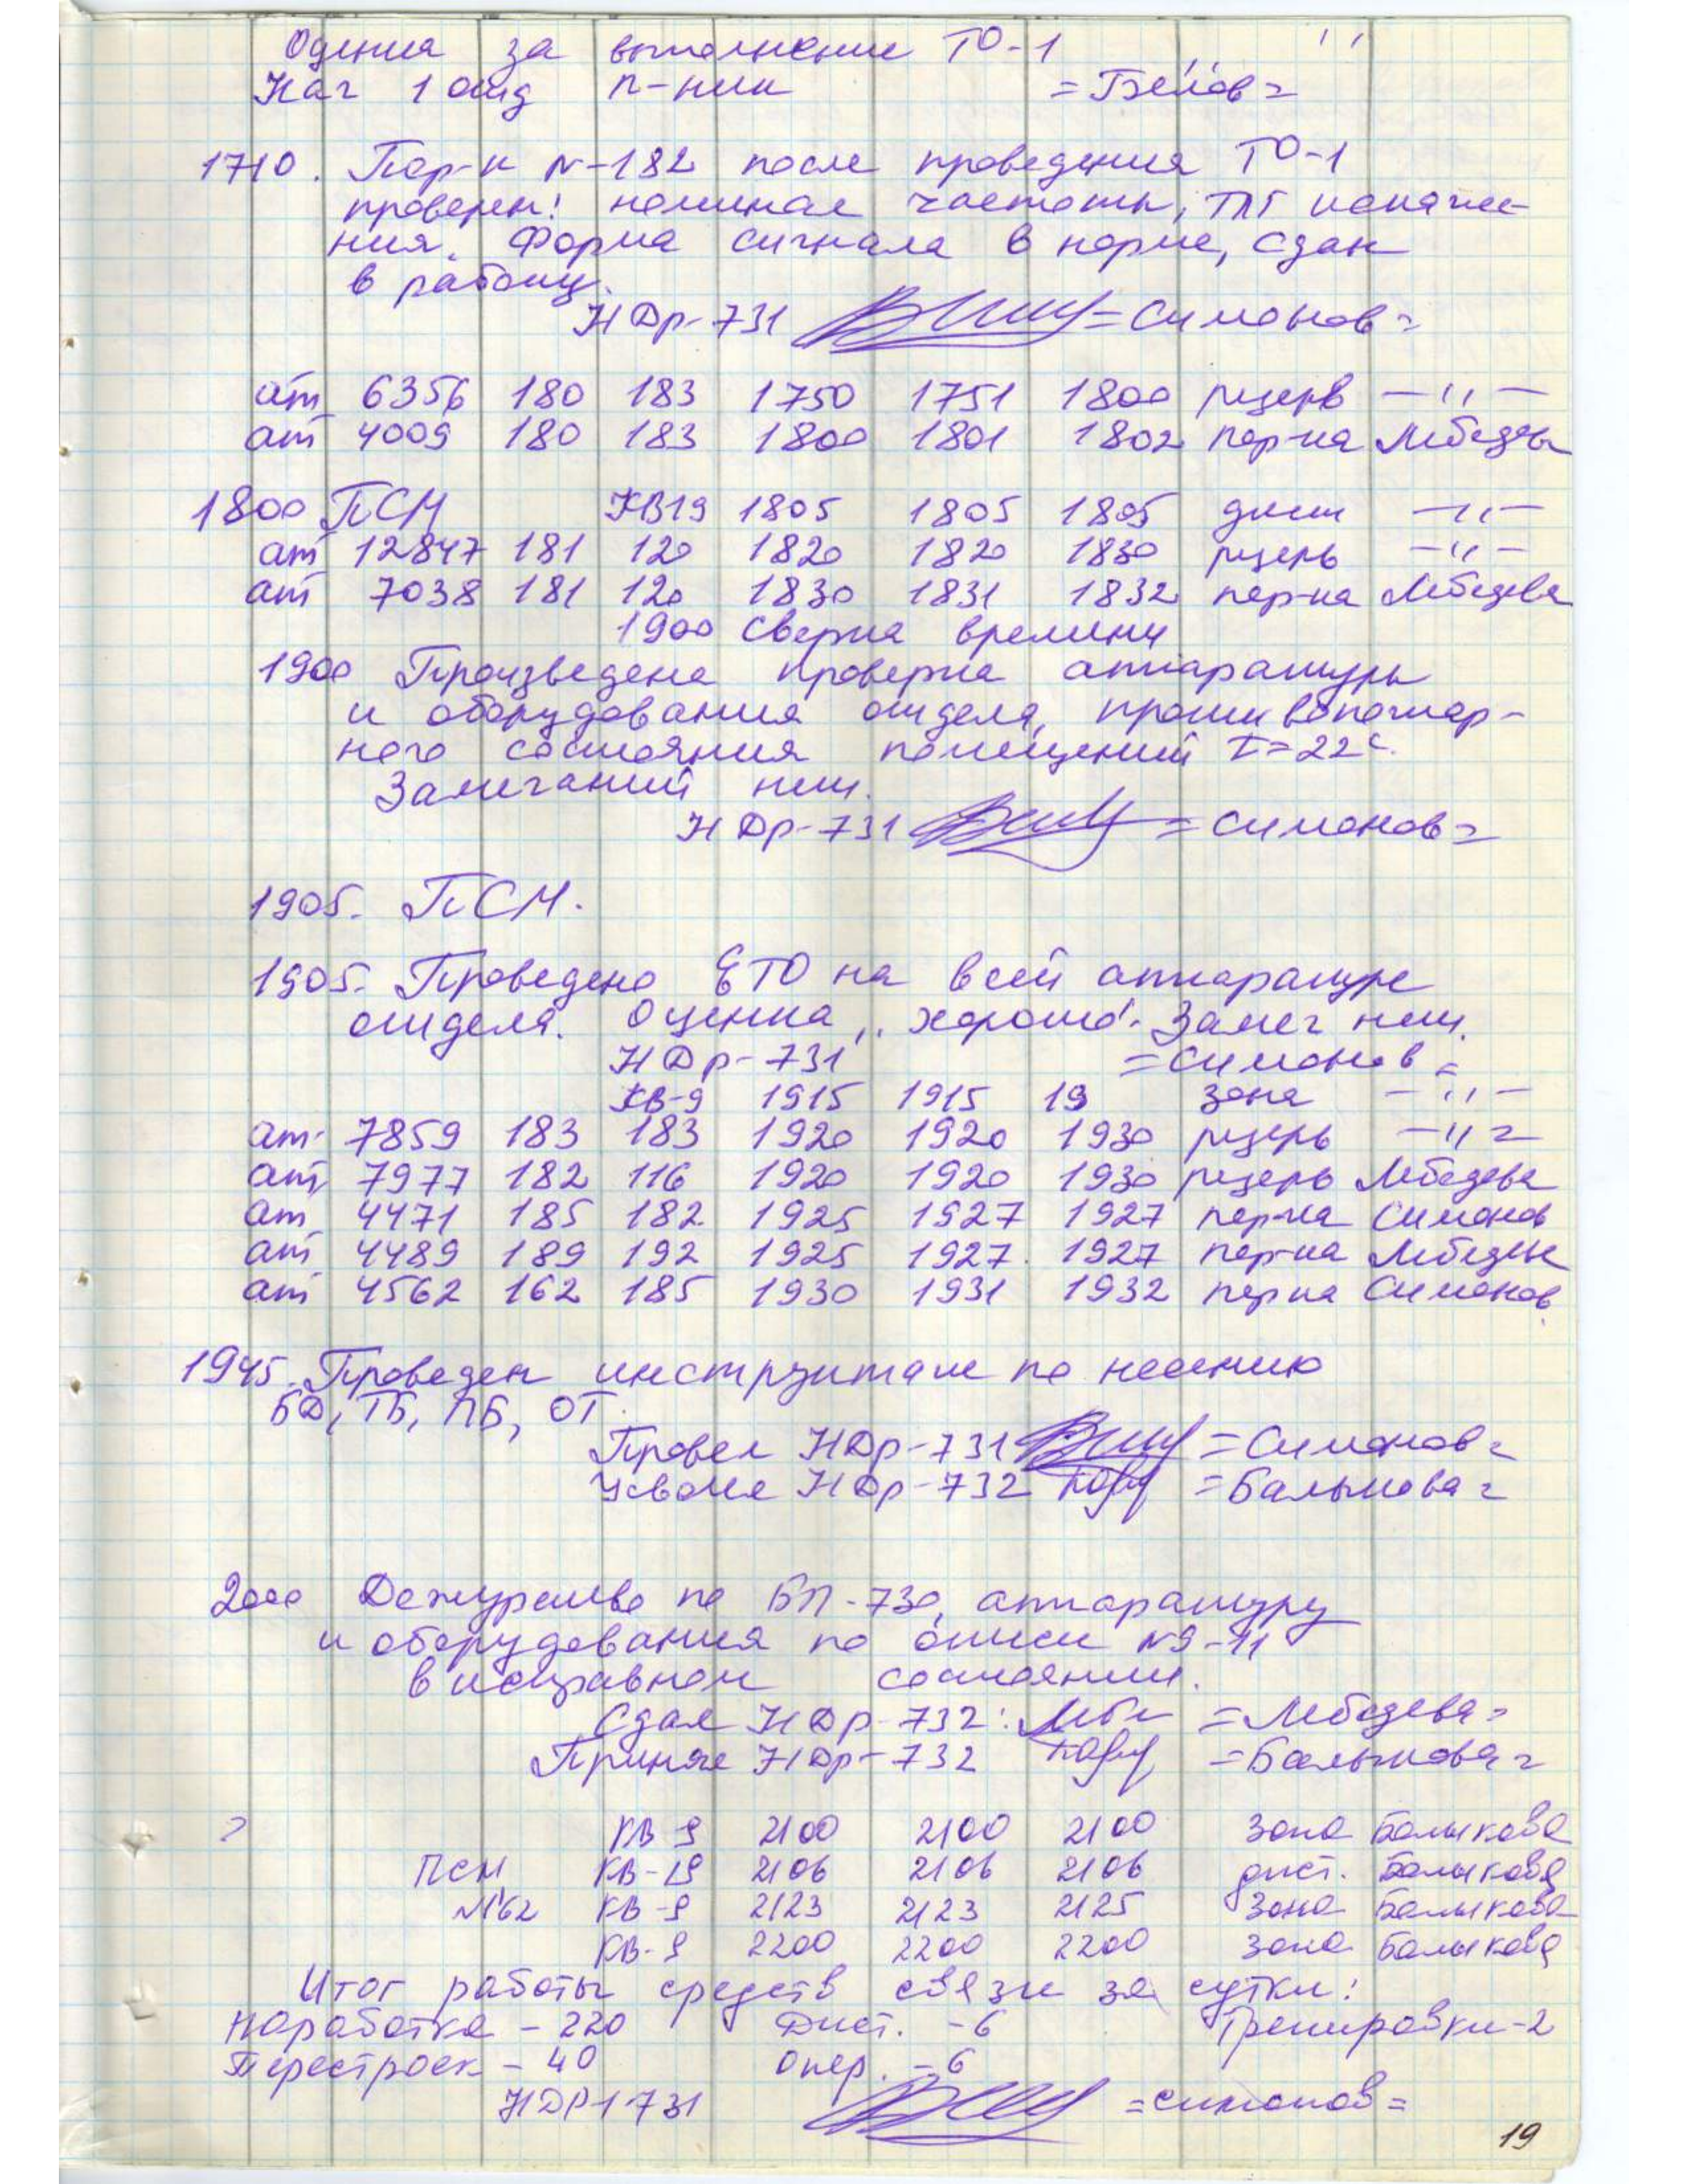 Оценка за выполнение ТО-1 " "
Нач 1 отд п-ник =Белов=
1710. Пер-к N-182 после проведения ТО-1
проверен: номинал частоты, ТЛГ искаже-
ния. Форма сигнала в норме, сдан
в работу.
НДр-731 =Симонов=
ат 6356 180 183 1750 1751 1800 резерв —"—
ат 4009 180 183 1800 1801 1802 пер-ка Лебедева
1800 ПСМ КВ19 1805 1805 1805 дист —"—
ат 12847 181 120 1820 1820 1830 резерв —"—
ат 7038 181 120 1830 1831 1832 пер-ка Лебедева
1900 Сверка времени
1900 Произведена проверка аппаратуры
и оборудования отдела, противопожар-
ного состояния помещений t=22°С.
Замечаний нет.
НДр-731 =Симонов=
1905. ПСМ.
1905. Проведено ЕТО на всей аппаратуре
отдела. Оценка „хорошо". Замеч нет.
НДр-731 =Симонов=
КВ-9 1915 1915 19 зона —"—
ат 7859 183 183 1920 1920 1930 резерв —"—
ат 7977 182 116 1920 1920 1930 резерв Лебедева
ат 4471 185 182 1925 1927 1927 пер-ка Симонов
ат 4489 189 192 1925 1927 1927 пер-ка Лебедева
ат 4562 162 185 1930 1931 1932 пер-ка Симонов
1945. Проведен инструктаж по несению
БД, ТБ, ПБ, ОТ.
Провел НДр-731 =Симонов=
Усвоил НДр-732 =Балыкова=
2000 Дежурство по БП-730, аппаратуру
и оборудования по описи №9-11
в исправном состоянии.
Сдал НДр-732: =Лебедева=
Принял НДр-732 =Балыкова=
КВ 9 2100 2100 2100 Зона Балыкова
ПСМ КВ-19 2106 2106 2106 дист. Балыкова
№62 КВ-9 2123 2123 2125 Зона Балыкова
КВ-9 2200 2200 2200 зона Балыкова
Итог работы средств связи за сутки:
Наработка - 220 Дист. -6 Тренировки-2
Перестроек - 40 Опер. -6
НДР1 731 =Симонов=
19